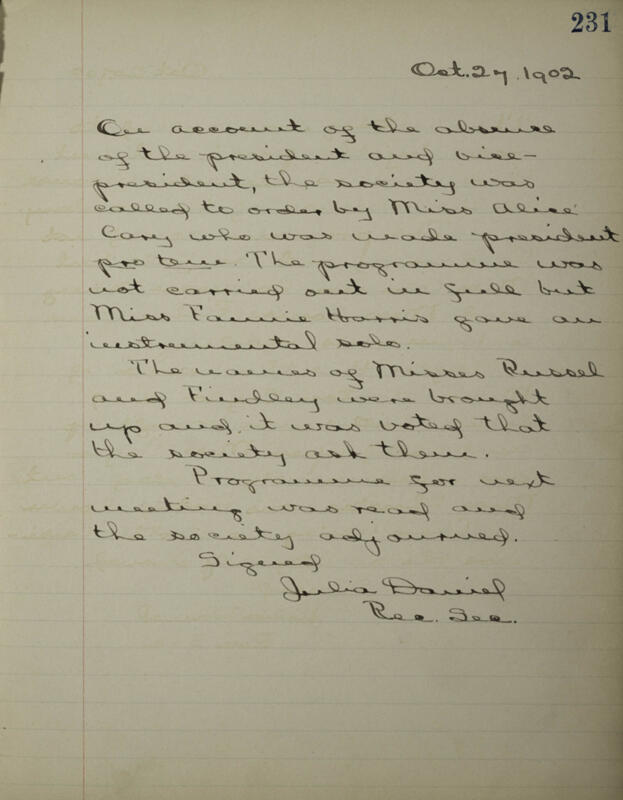 231
Oct. 27, 1902
On account of the absence
of the president and vice-
president, the society was
called to order by Miss Alice
Cary who was made president
pro tem. The programme was
not carried out in full but
Miss Fannie Harris gave an
instrumental solo.
The names of Misses Russel
and Findley were brought
up and it was voted that
the society ask them.
Programme for next
meeting was read and
the society adjourned.
Signed
Julia Daniel
Rec. Sec.